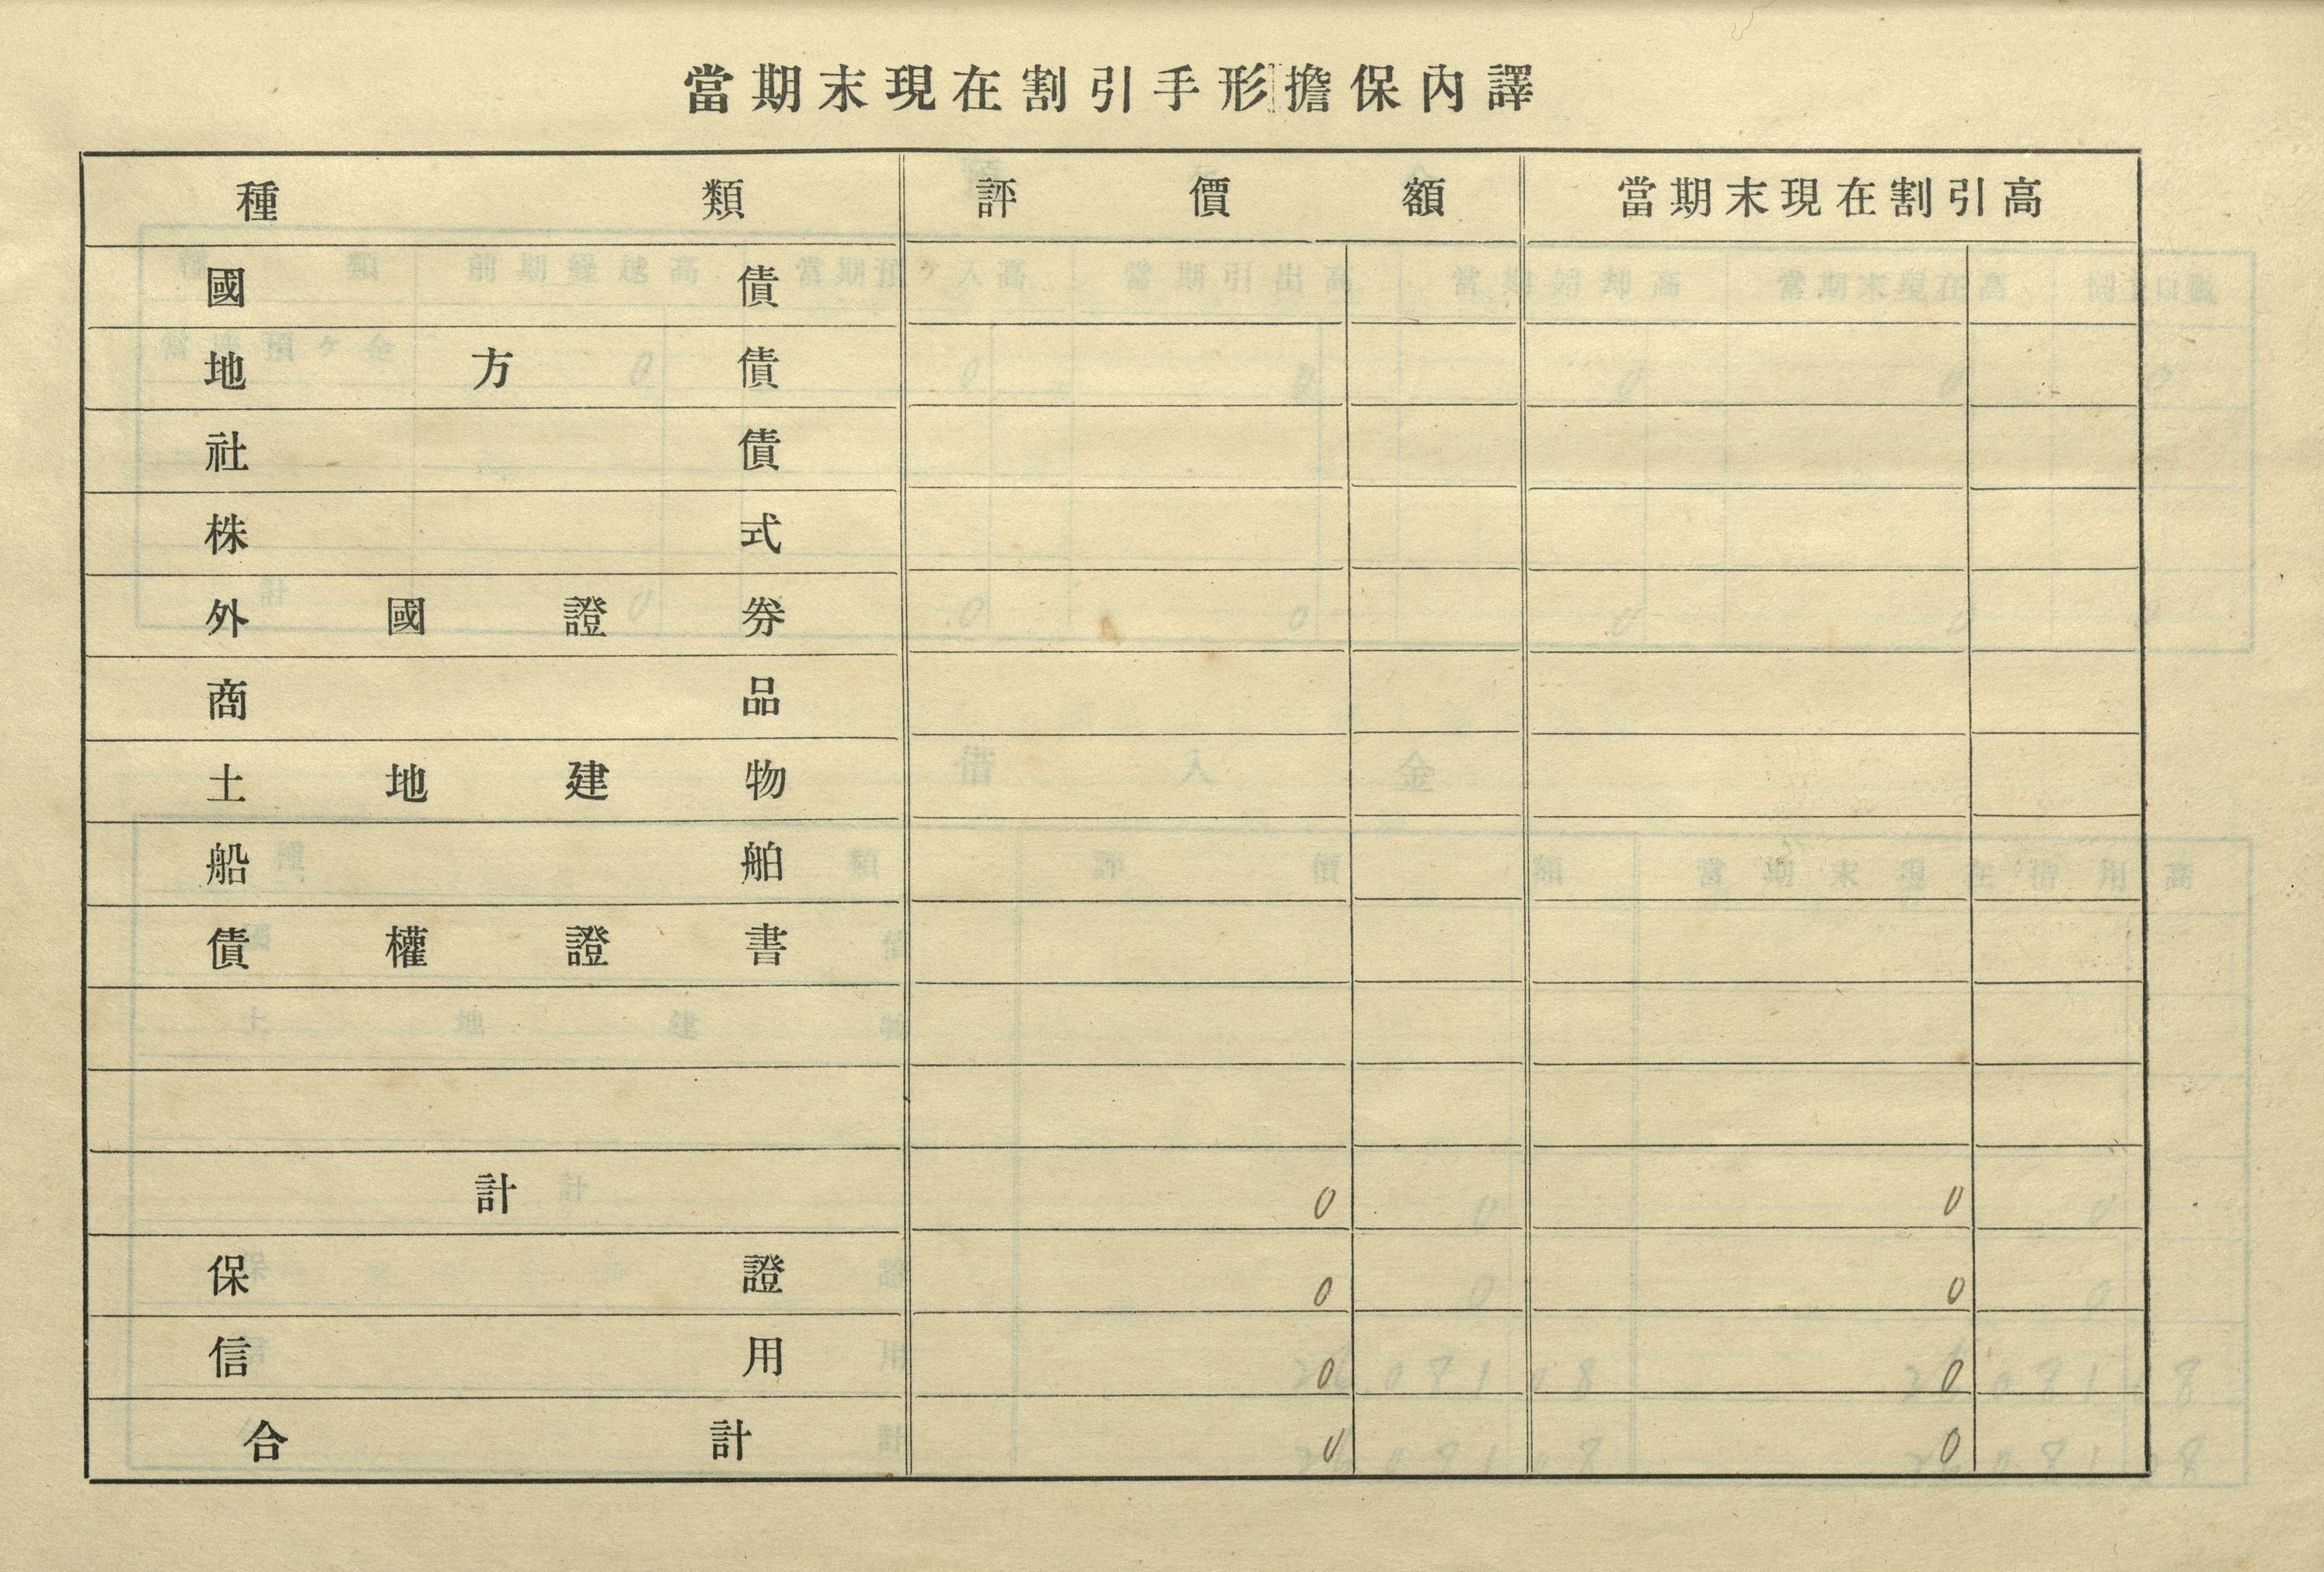 當期末現在割引手形擔保內譯
種類 評價額 當期末現在割引高
國債
地方債
社債
株式
外國證券
商品
土地建物
船舶
債權證書
計 0 0
保證 0 0
信用 0 0
合計 0 0